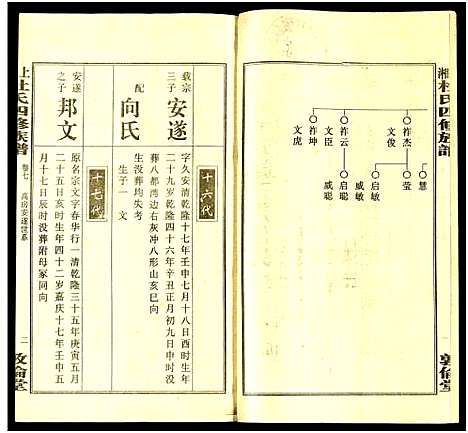 湘
杜氏四修族譜
慧
祚杰
瑩
文俊
启敏
威敏
祚云
启聪
文臣
威聪
祚坤
文虎
一
敦倫堂
十六代
载宗三子
安遂
字久安清乾隆十七年壬申七月十八日酉时生年
二十九岁乾隆四十六年辛丑正月初九日申时没
葬八都湾边右灰冲八形山亥巳向
配
向氏
生没葬均失考
生子一 文
十七代
安遂之子
邦文
原名宗文字春华行一清乾隆三十五年庚寅五月
二十五日亥时生年四十二岁嘉庆十七年壬申五
月十七日辰时没葬附母冢同向
上杜氏四修族譜
卷七
高房安遂世系
二
敦倫堂